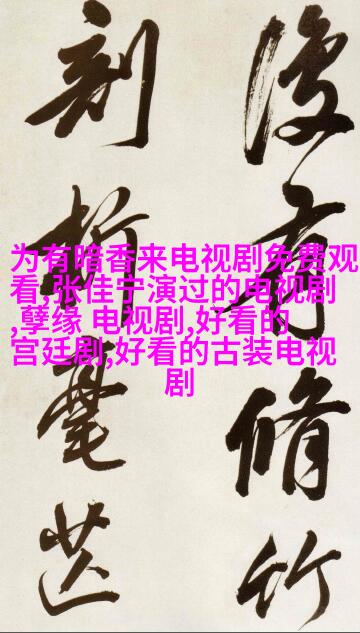 有脩竹
刻
为有暗香来电视剧免费观
看,张佳宁演过的电视剧
,孽缘 电视剧,好看的
宫廷剧,好看的古装电视
剧